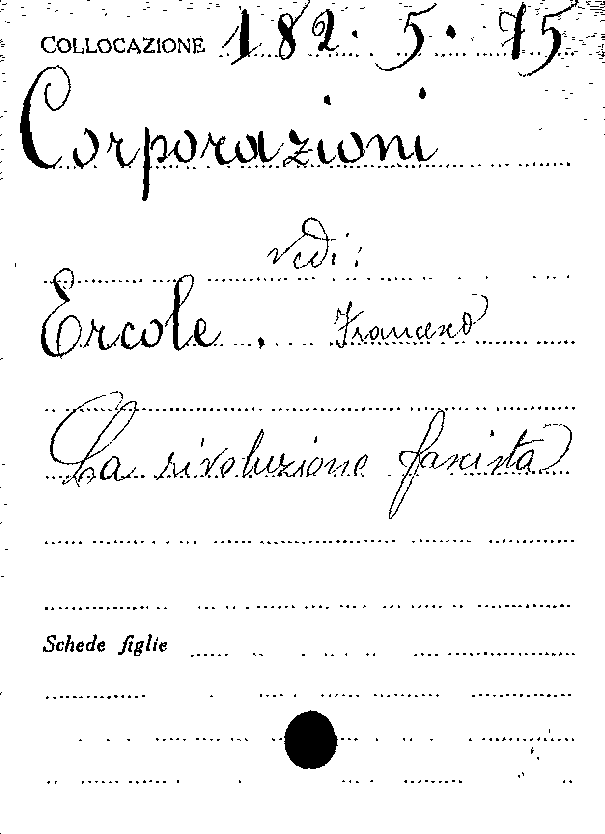 COLLOCAZIONE 182.5.75
Corporazioni
vedi:
Ercole. Francesco
La rivoluzione fascista
Schede figlie